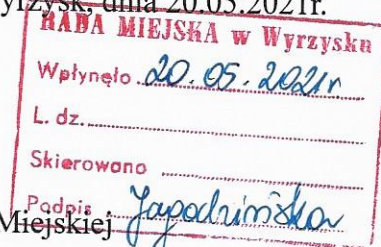 yrzysk, dnia 20.05.2021r.
RADA MIEJSKA w Wyrzysku
Wpłynęło 20.05.2021r
L. dz.
Skierowano
Podpis
Miejskiej